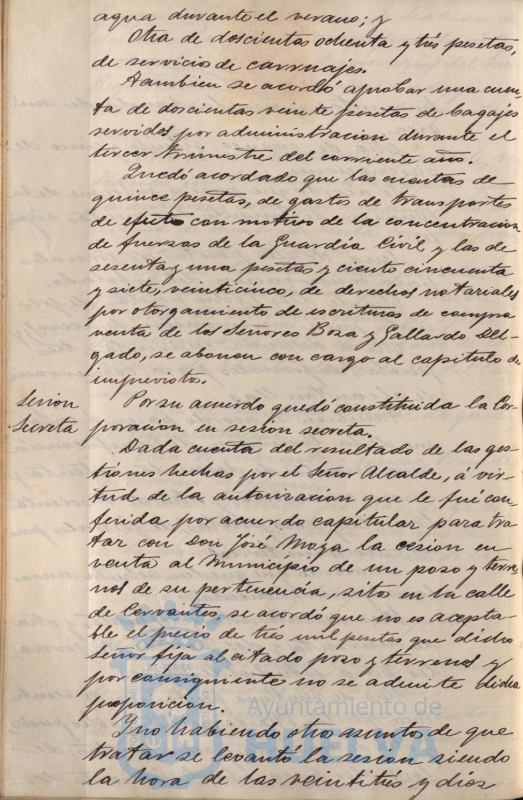 agua durante el verano; y
Otra de doscientas ochenta y tres pesetas,
de servicio de carruajes.
Tambien se acordó aprobar una cuen-
ta de doscientas veinte pesetas de bagajes
servidos por administracion durante el
tercer trimestre del corriente año.
Quedó acordado que las cuentas de
quince pesetas, de gastos de transportes
de efectos con motivo de la concentracion
de fuerzas de la Guardia Civil y las de
sesenta y una pesetas y ciento cincuenta
y siete, veinticinco, de derechos notariales
por otorgamiento de escrituras de compra
venta de los Señores Boza y Gallardo Del-
gado, se abonen con cargo al capitulo de
imprevistos.
Sesion
Secreta
Por su acuerdo quedó constituida la Cor-
poracion en sesion secreta.
Dada cuenta del resultado de las ges-
tiones hechas por el Señor Alcalde, á vir-
tud de la autorizacion que le fué con-
ferida por acuerdo capitular para tra-
tar con Don José Moya la cesion en
venta al Municipio de un pozo y terre-
nos de su pertenencia, sito en la calle
de Cervantes, se acordó que no es acepta-
ble el precio de tres mil pesetas que dicho
Señor fija al citado pozo y terrenos y
por consiguiente no se admite dicha
proposicion.
Y no habiendo otro asunto de que
tratar se levantó la sesion siendo
la hora de las veintitrés y diez
Ayuntamiento de
HUELVA